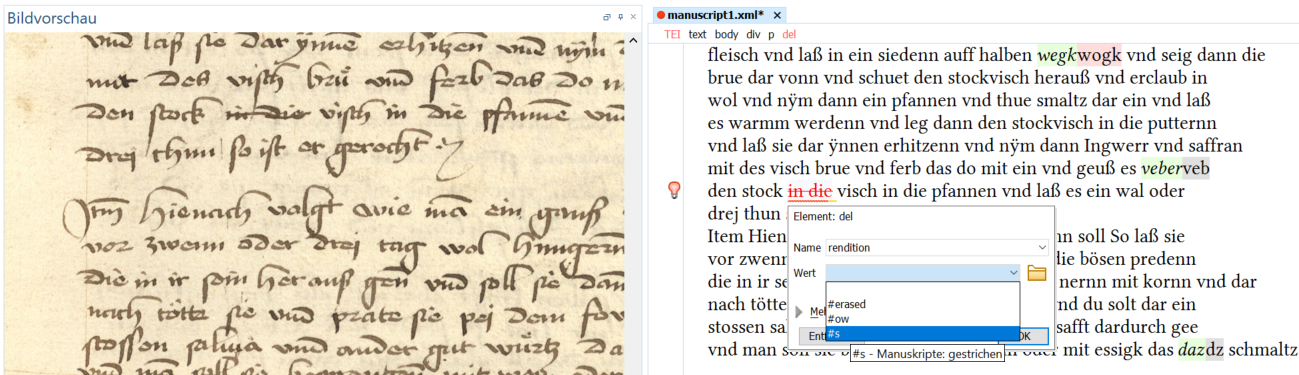 Bildvorschau
vnd laß sie dar ÿnnen erhitzen vnd nÿm
mit des visch brü vnd ferb das do
den stock in die visch in die pfannen
drei thun so ist er gerocht
Itm Hienach volgt wie mā ein ganß
vor zwenn oder drei tag wol hungern
die in ir sein herauß gen vnd soll sie
nach tötte sie vnd prate sie pei dem
stossen saluia vnd ander gut würtz
manuscript1.xml*
TEI text body div p del
fleisch vnd laß in ein siedenn auff halben wegkwogk vnd seig dann die
brue dar vonn vnd schuet den stockvisch herauß vnd erclaub in
wol vnd nÿm dann ein pfannen vnd thue smaltz dar ein vnd laß
es warmm werdenn vnd leg dann den stockvisch in die putternn
vnd laß sie dar ÿnnen erhitzenn vnd nÿm dann Ingwerr vnd saffran
mit des visch brue vnd ferb das do mit ein vnd geuß es veberveb
den stock in die visch in die pfannen vnd laß es ein wal oder
drej thun
Item Hien nn soll So laß sie
vor zwenn die bösen predenn
die in ir se nernn mit kornn vnd dar
nach tötte nd du solt dar ein
stossen sa safft dardurch gee
vnd man soll sie oder mit essigk das dazdz schmaltz
Element: del
Name rendition
Wert
#erased
#ow
#s
Me
Ent OK
#s - Manuskripte: gestrichen